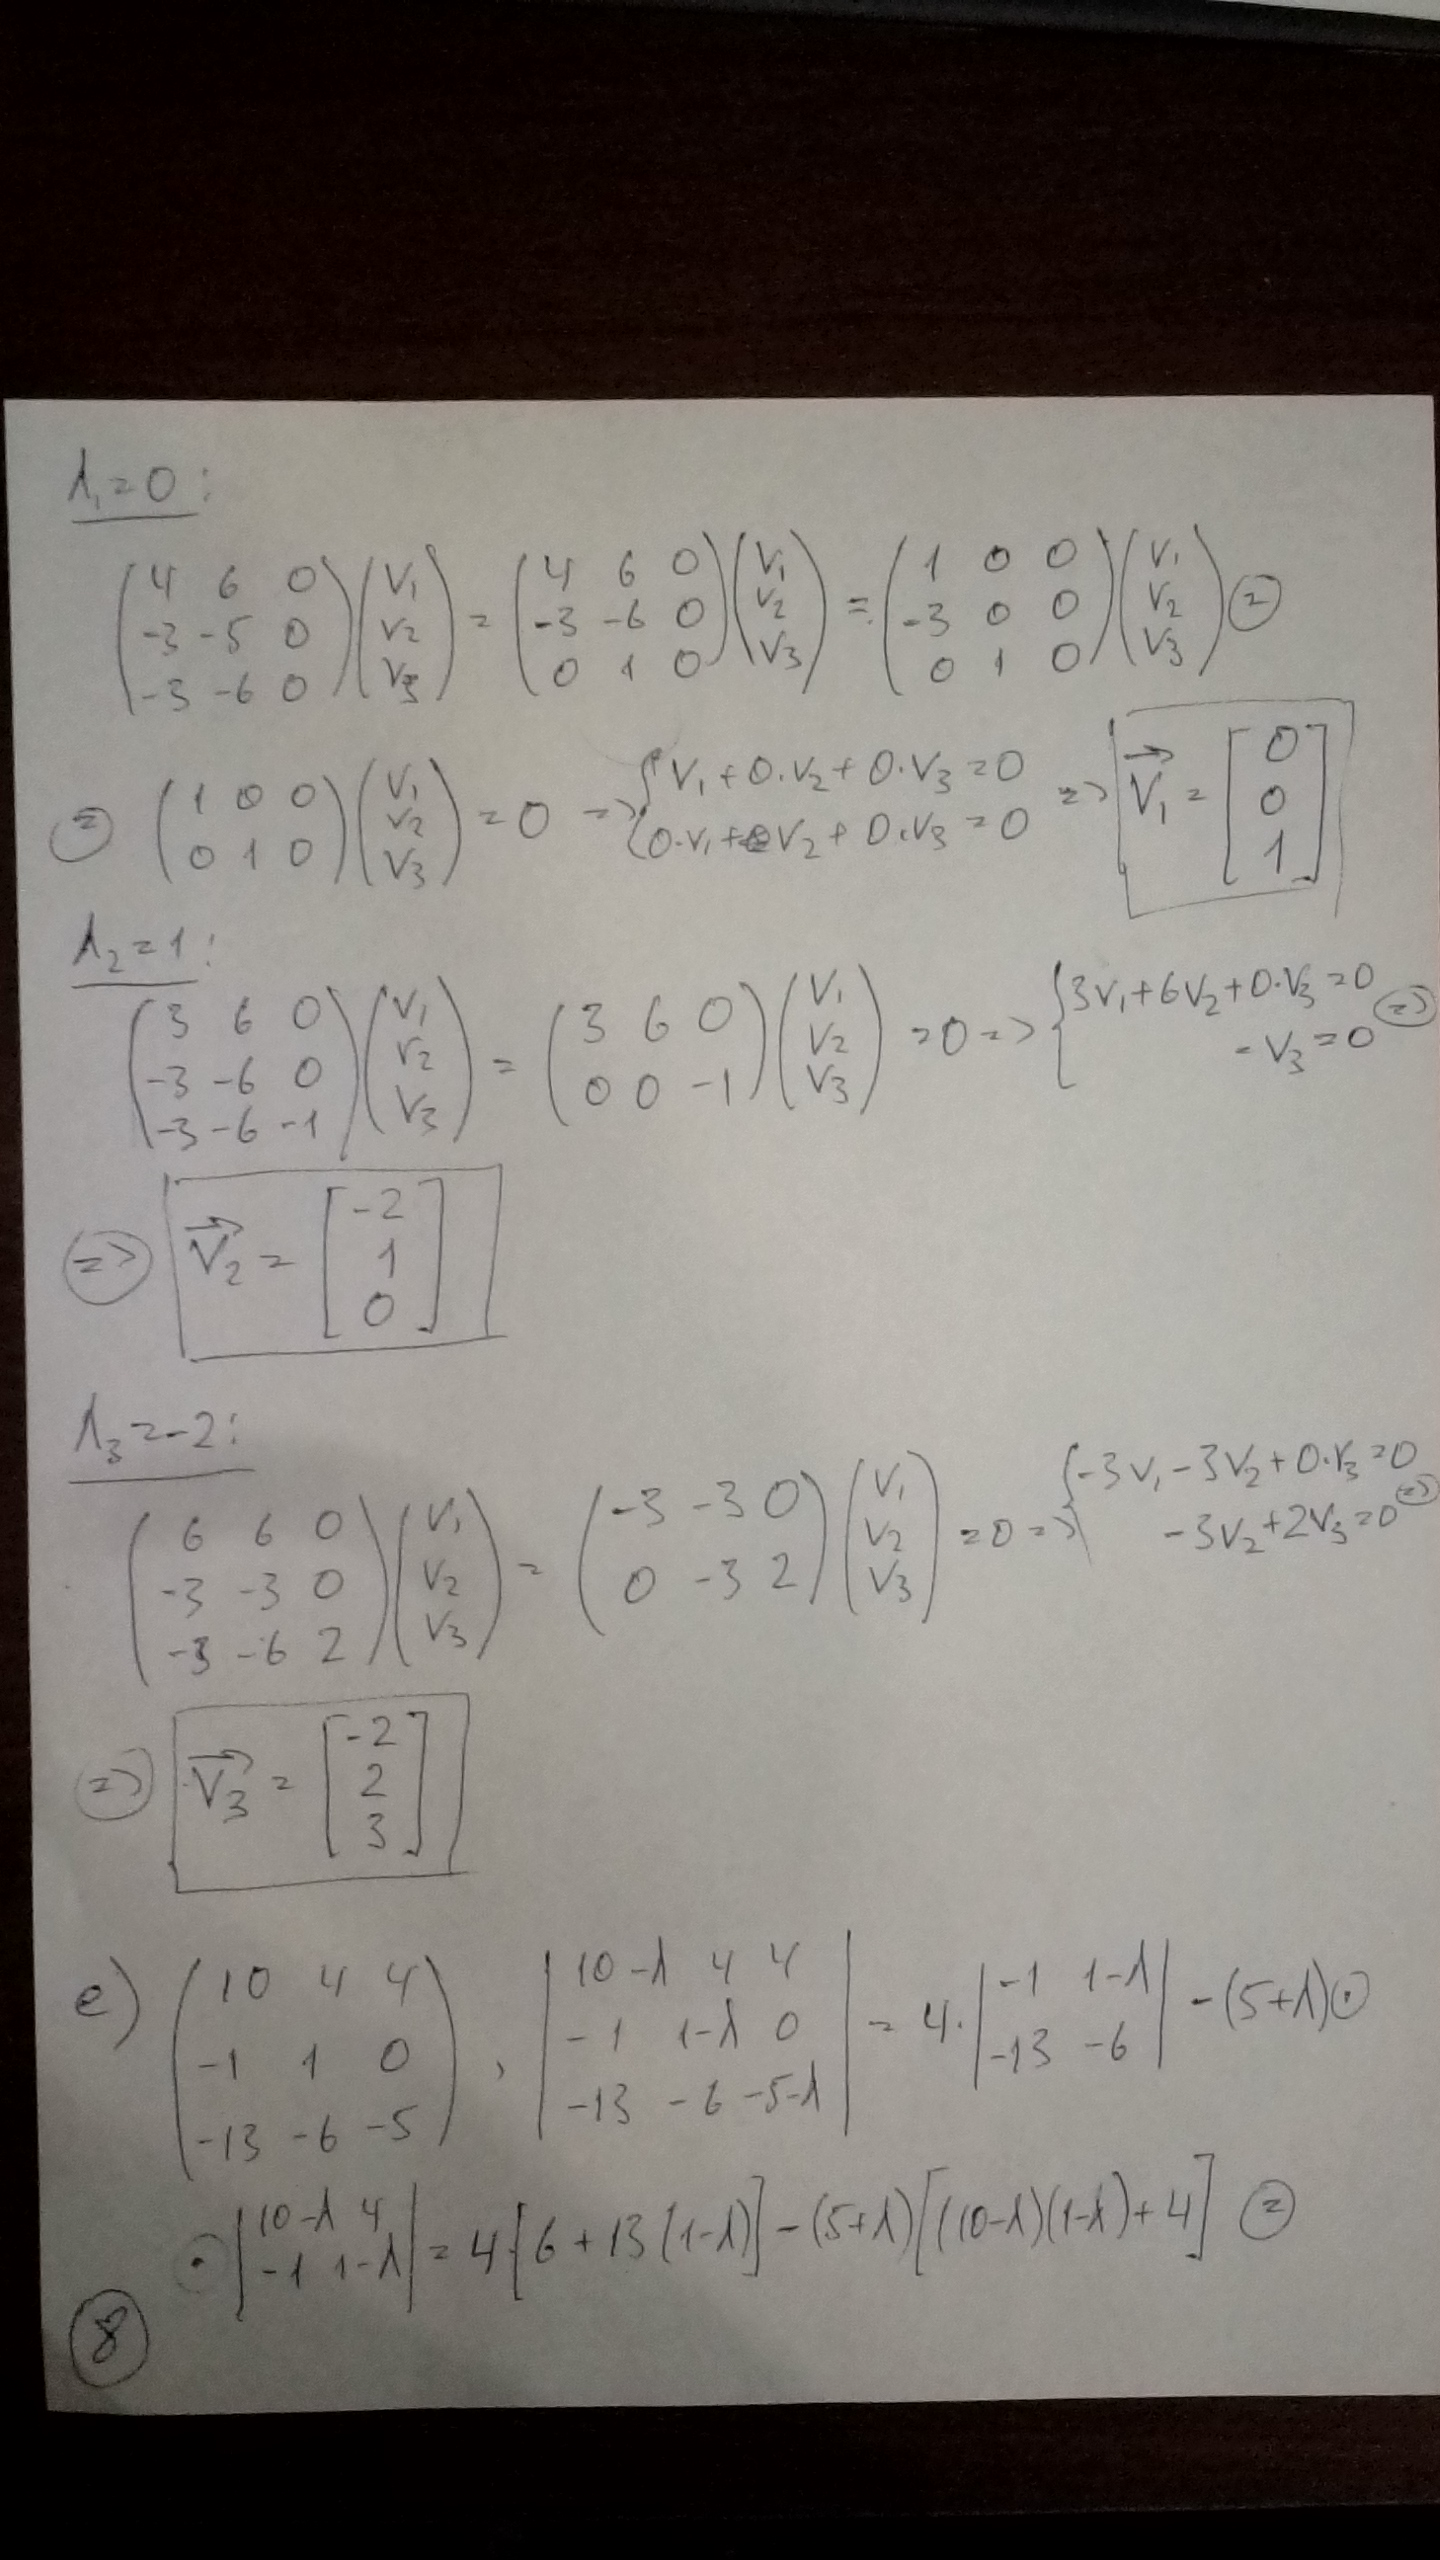 λ₁=0:
(4 6 0; -3 -5 0; -3 -6 0)(V₁; V₂; V₃) = (4 6 0; -3 -6 0; 0 1 0)(V₁; V₂; V₃) = (1 0 0; -3 0 0; 0 1 0)(V₁; V₂; V₃) (=)
(=) (1 0 0; 0 1 0)(V₁; V₂; V₃) = 0 => {V₁+0·V₂+0·V₃=0; 0·V₁+V₂+0·V₃=0 => V₁ = [0; 0; 1]
λ₂=1:
(3 6 0; -3 -6 0; -3 -6 -1)(V₁; V₂; V₃) = (3 6 0; 0 0 -1)(V₁; V₂; V₃) =0 => {3V₁+6V₂+0·V₃=0; -V₃=0 (=>)
(=>) V₂ = [-2; 1; 0]
λ₃=-2:
(6 6 0; -3 -3 0; -3 -6 2)(V₁; V₂; V₃) = (-3 -3 0; 0 -3 2)(V₁; V₂; V₃) =0 => {-3V₁-3V₂+0·V₃=0; -3V₂+2V₃=0 (=>)
(=>) V₃ = [-2; 2; 3]
e) (10 4 4; -1 1 0; -13 -6 -5), |10-λ 4 4; -1 1-λ 0; -13 -6 -5-λ| = 4·|-1 1-λ; -13 -6| - (5+λ)⊙
⊙|10-λ 4; -1 1-λ| = 4·[6+13(1-λ)] - (5+λ)[(10-λ)(1-λ)+4] (=)
8